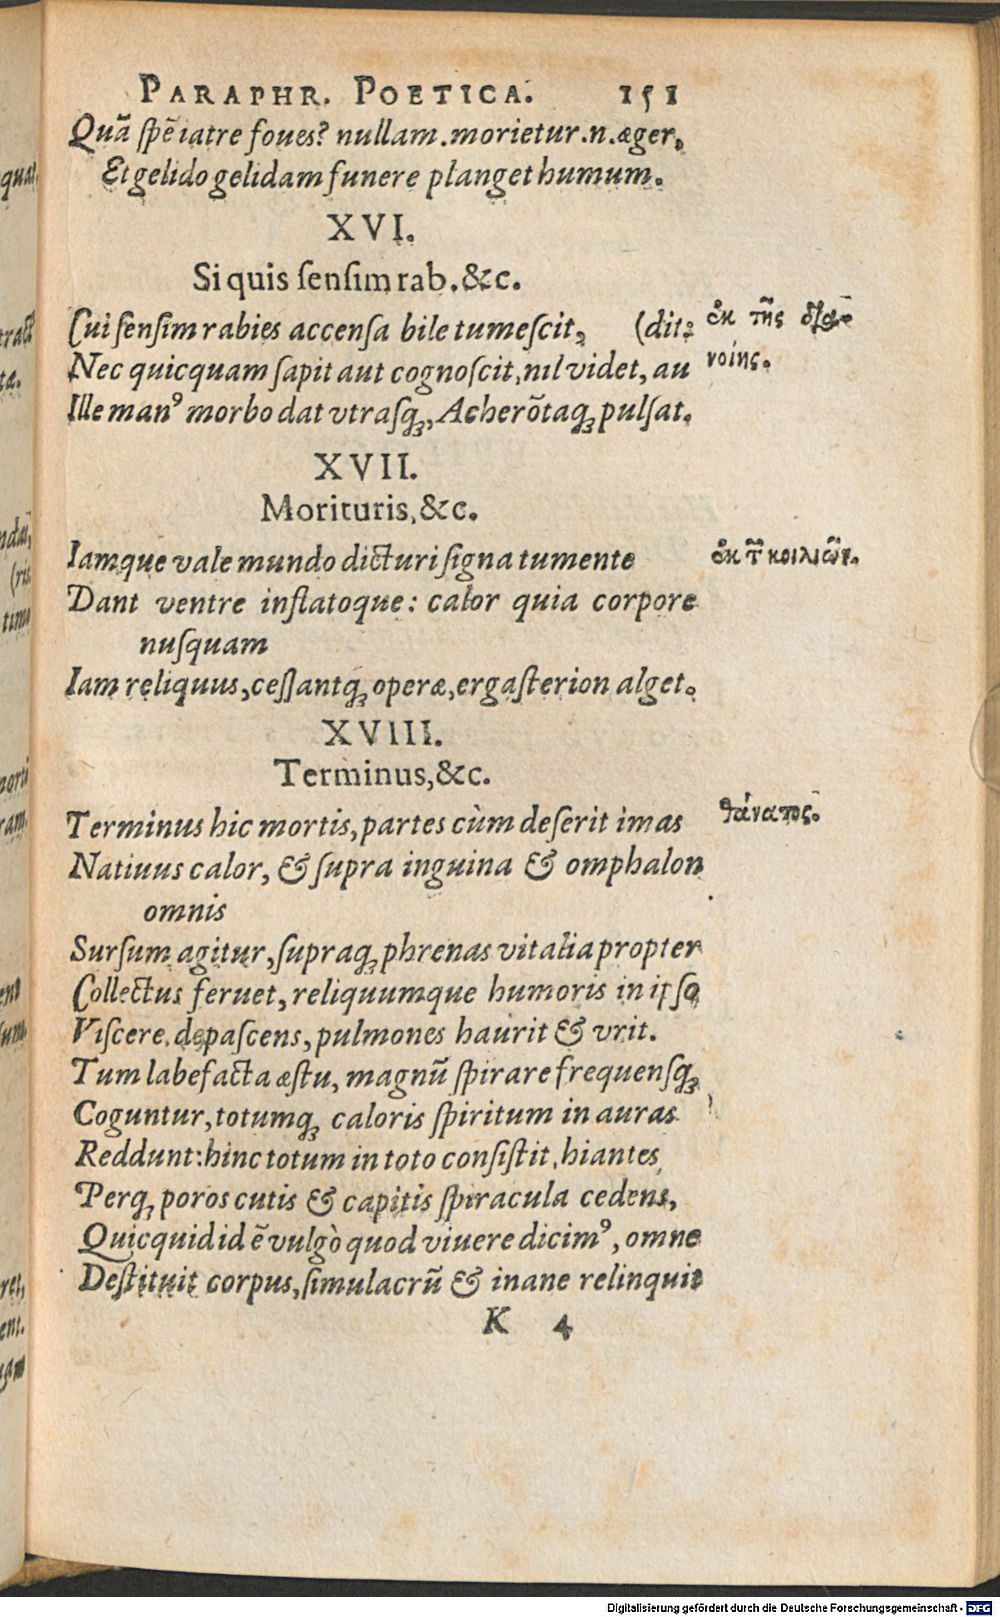 PARAPHR. POETICA. 151
Quã ſpẽ iatre foues? nullam. morietur .n. æger,
Et gelido gelidam funere planget humum.
XVI.
Si quis ſenſim rab. &c.
Cui ſenſim rabies accenſa bile tumeſcit, (dit:
ἐκ τῆς δια-
Nec quicquam ſapit aut cognoſcit, nil videt, au
νοίης.
Ille manꝰ morbo dat vtraſq́ꝫ, Acherõtaqꝫ pulſat.
XVII.
Morituris, &c.
Iamque vale mundo dicturi ſigna tumente
ἐκ τ κοιλιῶν.
Dant ventre inflatoque: calor quia corpore
nuſquam
Iam reliquus, ceſſantqꝫ operæ, ergaſterion alget.
XVIII.
Terminus, &c.
Terminus hic mortis, partes cùm deſerit imas
θάνατος.
Natiuus calor, & ſupra inguina & omphalon
omnis
Surſum agitur, ſupraqꝫ phrenas vitalia propter
Collectus feruet, reliquumque humoris in ipſo
Viſcere depaſcens, pulmones haurit & vrit.
Tum labefacta æſtu, magnũ ſpirare frequenſqꝫ
Coguntur, totumqꝫ caloris ſpiritum in auras
Reddunt: hinc totum in toto conſiſtit, hiantes
Perqꝫ poros cutis & capitis ſpiracula cedens,
Quicquid id ẽ vulgò quod viuere dicimꝰ, omne
Deſtituit corpus, ſimulacrũ & inane relinquit
K 4
Digitalisierung gefördert durch die Deutsche Forschungsgemeinschaft - DFG